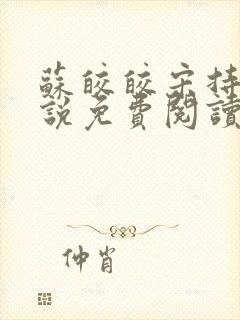 蘇皎皎宋持
說免費閱讀
仲肖